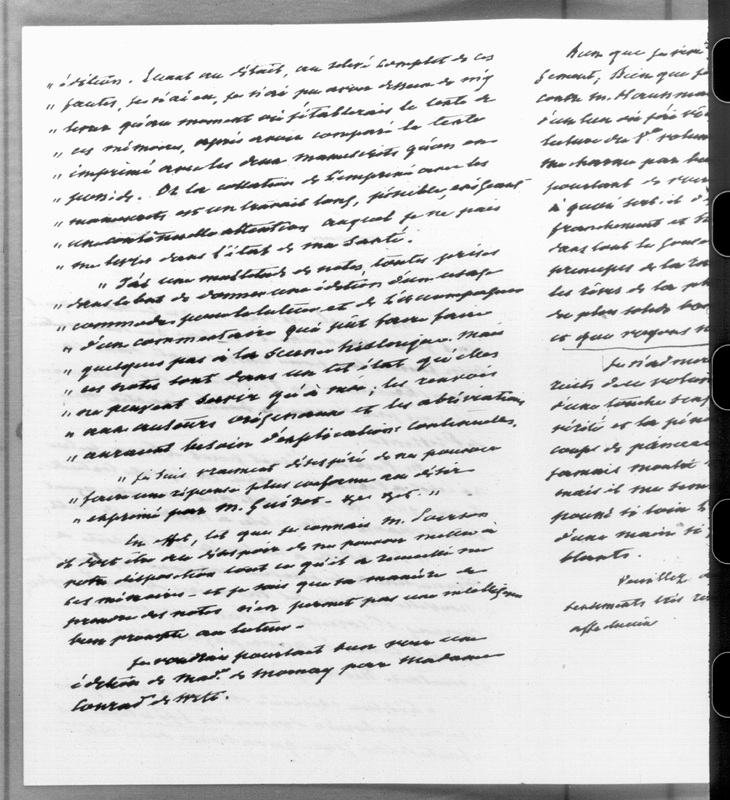 " éditeurs. Quant au détail, au relevé complet de ces
" fautes, je n'ai eu, je n'ai pu avoir dessein de m'y
" livrer qu'au moment où j'établirais le texte de
" ces mémoires, après avoir comparé le texte
" imprimé avec les deux manuscrits qu'on en
" possède. Or la collation de l'imprimé avec les
" manuscrits est un travail long, pénible, exigeant
" une continuelle attention auquel je ne puis
" me livrer dans l'état de ma santé.
" J'ai une multitude de notes, toutes prises
" dans le but de donner une édition d'un usage
" commode pour le lecteur et de l'accompagner
" d'un commentaire qui pût faire faire
" quelques pas à la science historique, mais
" ces notes sont dans un tel état qu'elles
" ne peuvent servir qu'à moi; les renvois
" aux auteurs originaux et les abréviations
" auraient besoin d'explications continuelles.
" Je suis vraiment désespéré de ne pouvoir
" faire une réponse plus conforme au désir
" exprimé par M. Guizot - &c &c. "
En effet, tel que je connais M. Poirson
il doit être au désespoir de ne pouvoir mettre à
votre disposition tout ce qu'il a recueilli sur
ces mémoires - et je sais que sa manière de
prendre des notes n'en permet pas une intelligence
bien prompte au lecteur -
Je voudrais pourtant bien voir une
édition de Mad.e de Mornay par Madame
Conrad de Witt.
Bien que je
Bien que
contre M. Haussman
lecture du 8e volume
me charme par
pourtant de
à quoi sert-il
franchement et
dans tout le
principes de la
les rêves de la
du plus solide
et que voyons
Je n'ai
récits du volume
d'une touche
vérité et la
coups de pinceau
jamais monté
mais il me
poussé si loin
d'une main si
Veuillez
sentiments très
affectueux